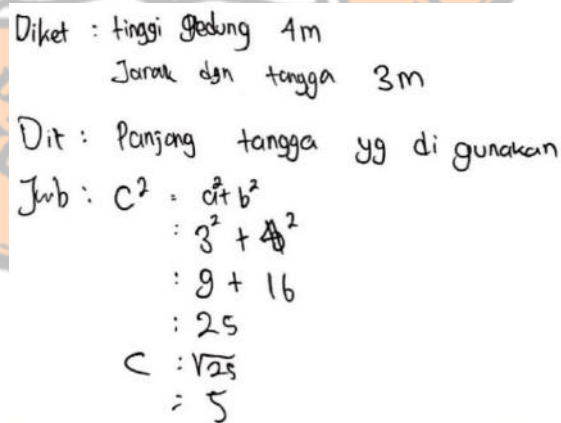 Diket : tinggi gedung 4m
Jarak dgn tangga 3m
Dit : Panjang tangga yg di gunakan
Jwb : C² = a² + b²
: 3² + 4²
: 9 + 16
: 25
C : √25
= 5